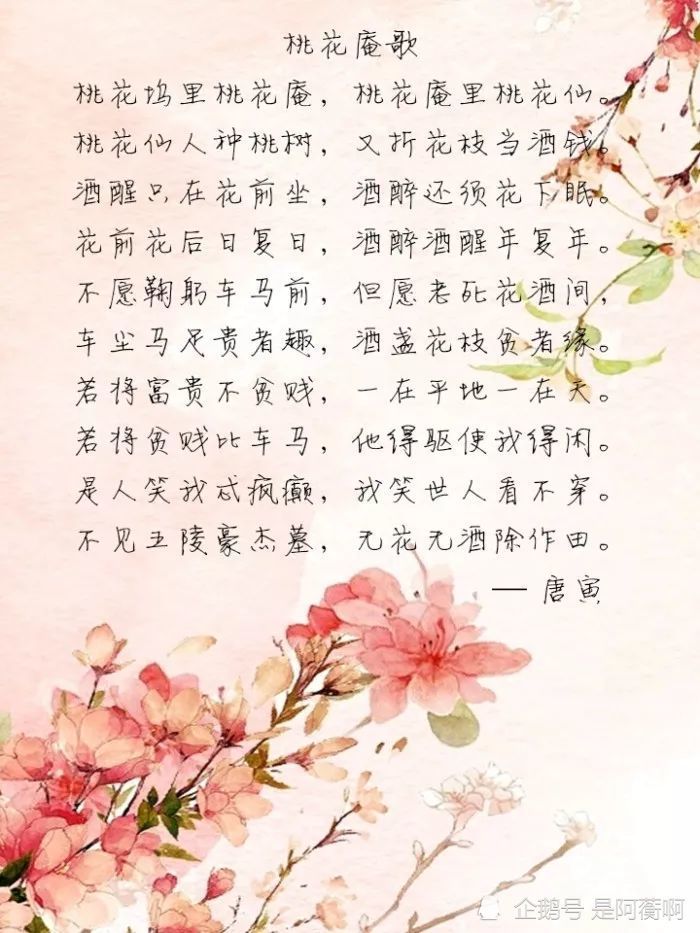 桃花庵歌
桃花坞里桃花庵，桃花庵里桃花仙。
桃花仙人种桃树，又折花枝当酒钱。
酒醒只在花前坐，酒醉还须花下眠。
花前花后日复日，酒醉酒醒年复年。
不愿鞠躬车马前，但愿老死花酒间，
车尘马足贵者趣，酒盏花枝贫者缘。
若将富贵不贫贱，一在平地一在天。
若将贫贱比车马，他得驱使我得闲。
是人笑我忒疯癫，我笑世人看不穿。
不见五陵豪杰墓，无花无酒除作田。
— 唐寅
企鹅号 是阿蘅啊